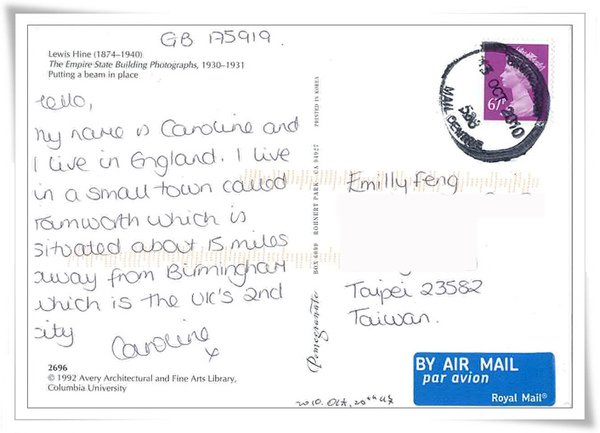 GB 175919.
Lewis Hine (1874–1940)
The Empire State Building Photographs, 1930–1931
Putting a beam in place
Hello,
My name is Caroline and
I live in England. I live
in a small town called
Tamworth which is
situated about 15 miles
away from Birmingham
which is the UK's 2nd
city
Caroline
x
2696
© 1992 Avery Architectural and Fine Arts Library,
Columbia University
PRINTED IN KOREA
BOX 6099 ROHNERT PARK, CA 94927
Pomegranate
67P
MAIL CENTRE
13 OCT 2010
Emilly Feng
Taipei 23582
Taiwan.
BY AIR MAIL
par avion
Royal Mail®
2010. Oct, 20th